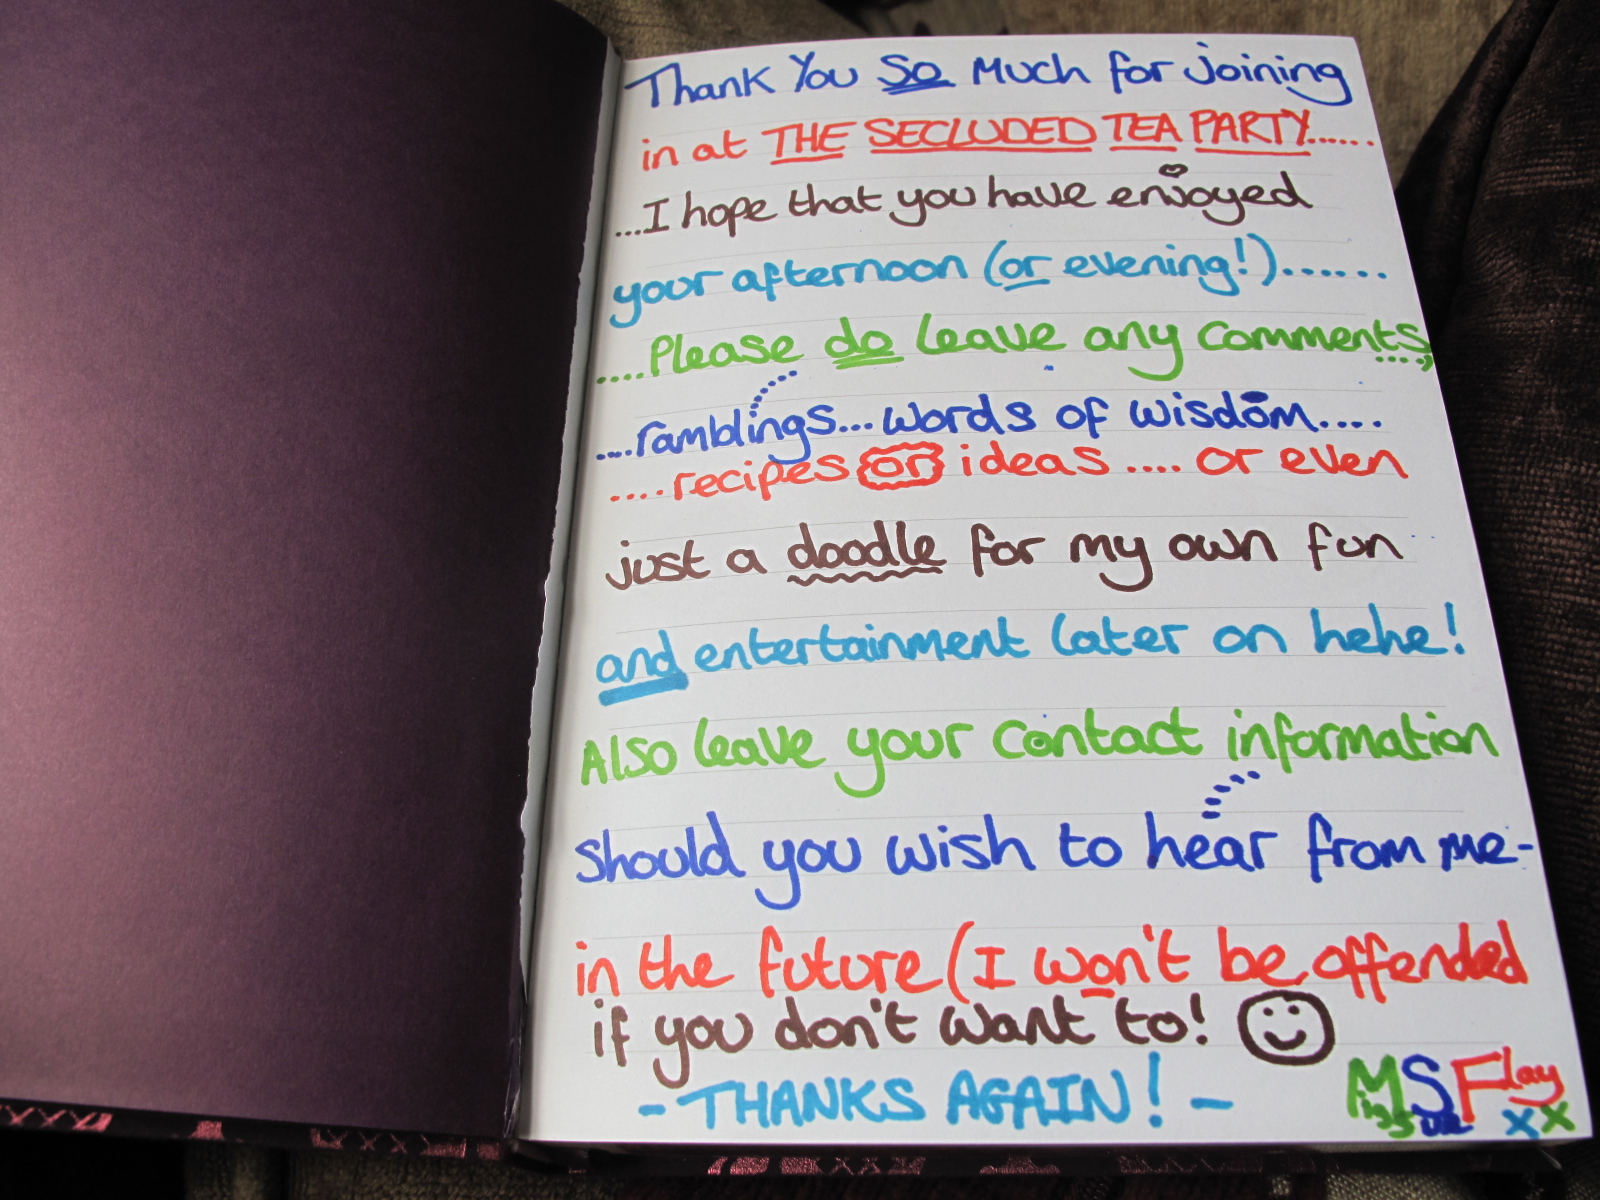 Thank You So Much for joining
in at THE SECLUDED TEA PARTY......
...I hope that you have enjoyed
your afternoon (or evening!)......
....Please do leave any comments,
....ramblings...words of wisdom....
....recipes or ideas.... or even
just a doodle for my own fun
and entertainment later on hehe!
Also leave your contact information
should you wish to hear from me-
in the future (I won't be offended
if you don't want to!
-THANKS AGAIN! -
Miss Sue Flay
xx